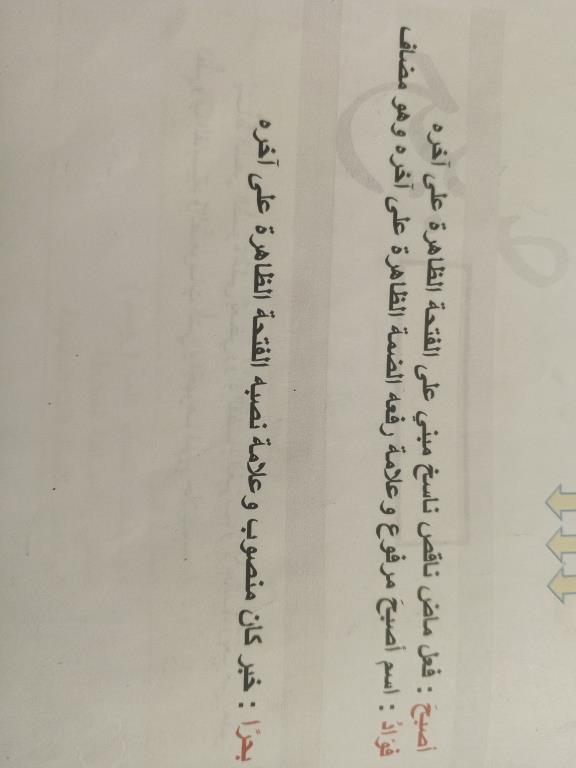 أصبحَ : فعل ماض ناقص ناسخ مبني على الفتحة الظاهرة على آخره
فؤادُ : اسم أصبحَ مرفوع وعلامة رفعه الضمة الظاهرة على آخره وهو مضاف
بحرًا : خبر كان منصوب وعلامة نصبه الفتحة الظاهرة على آخره